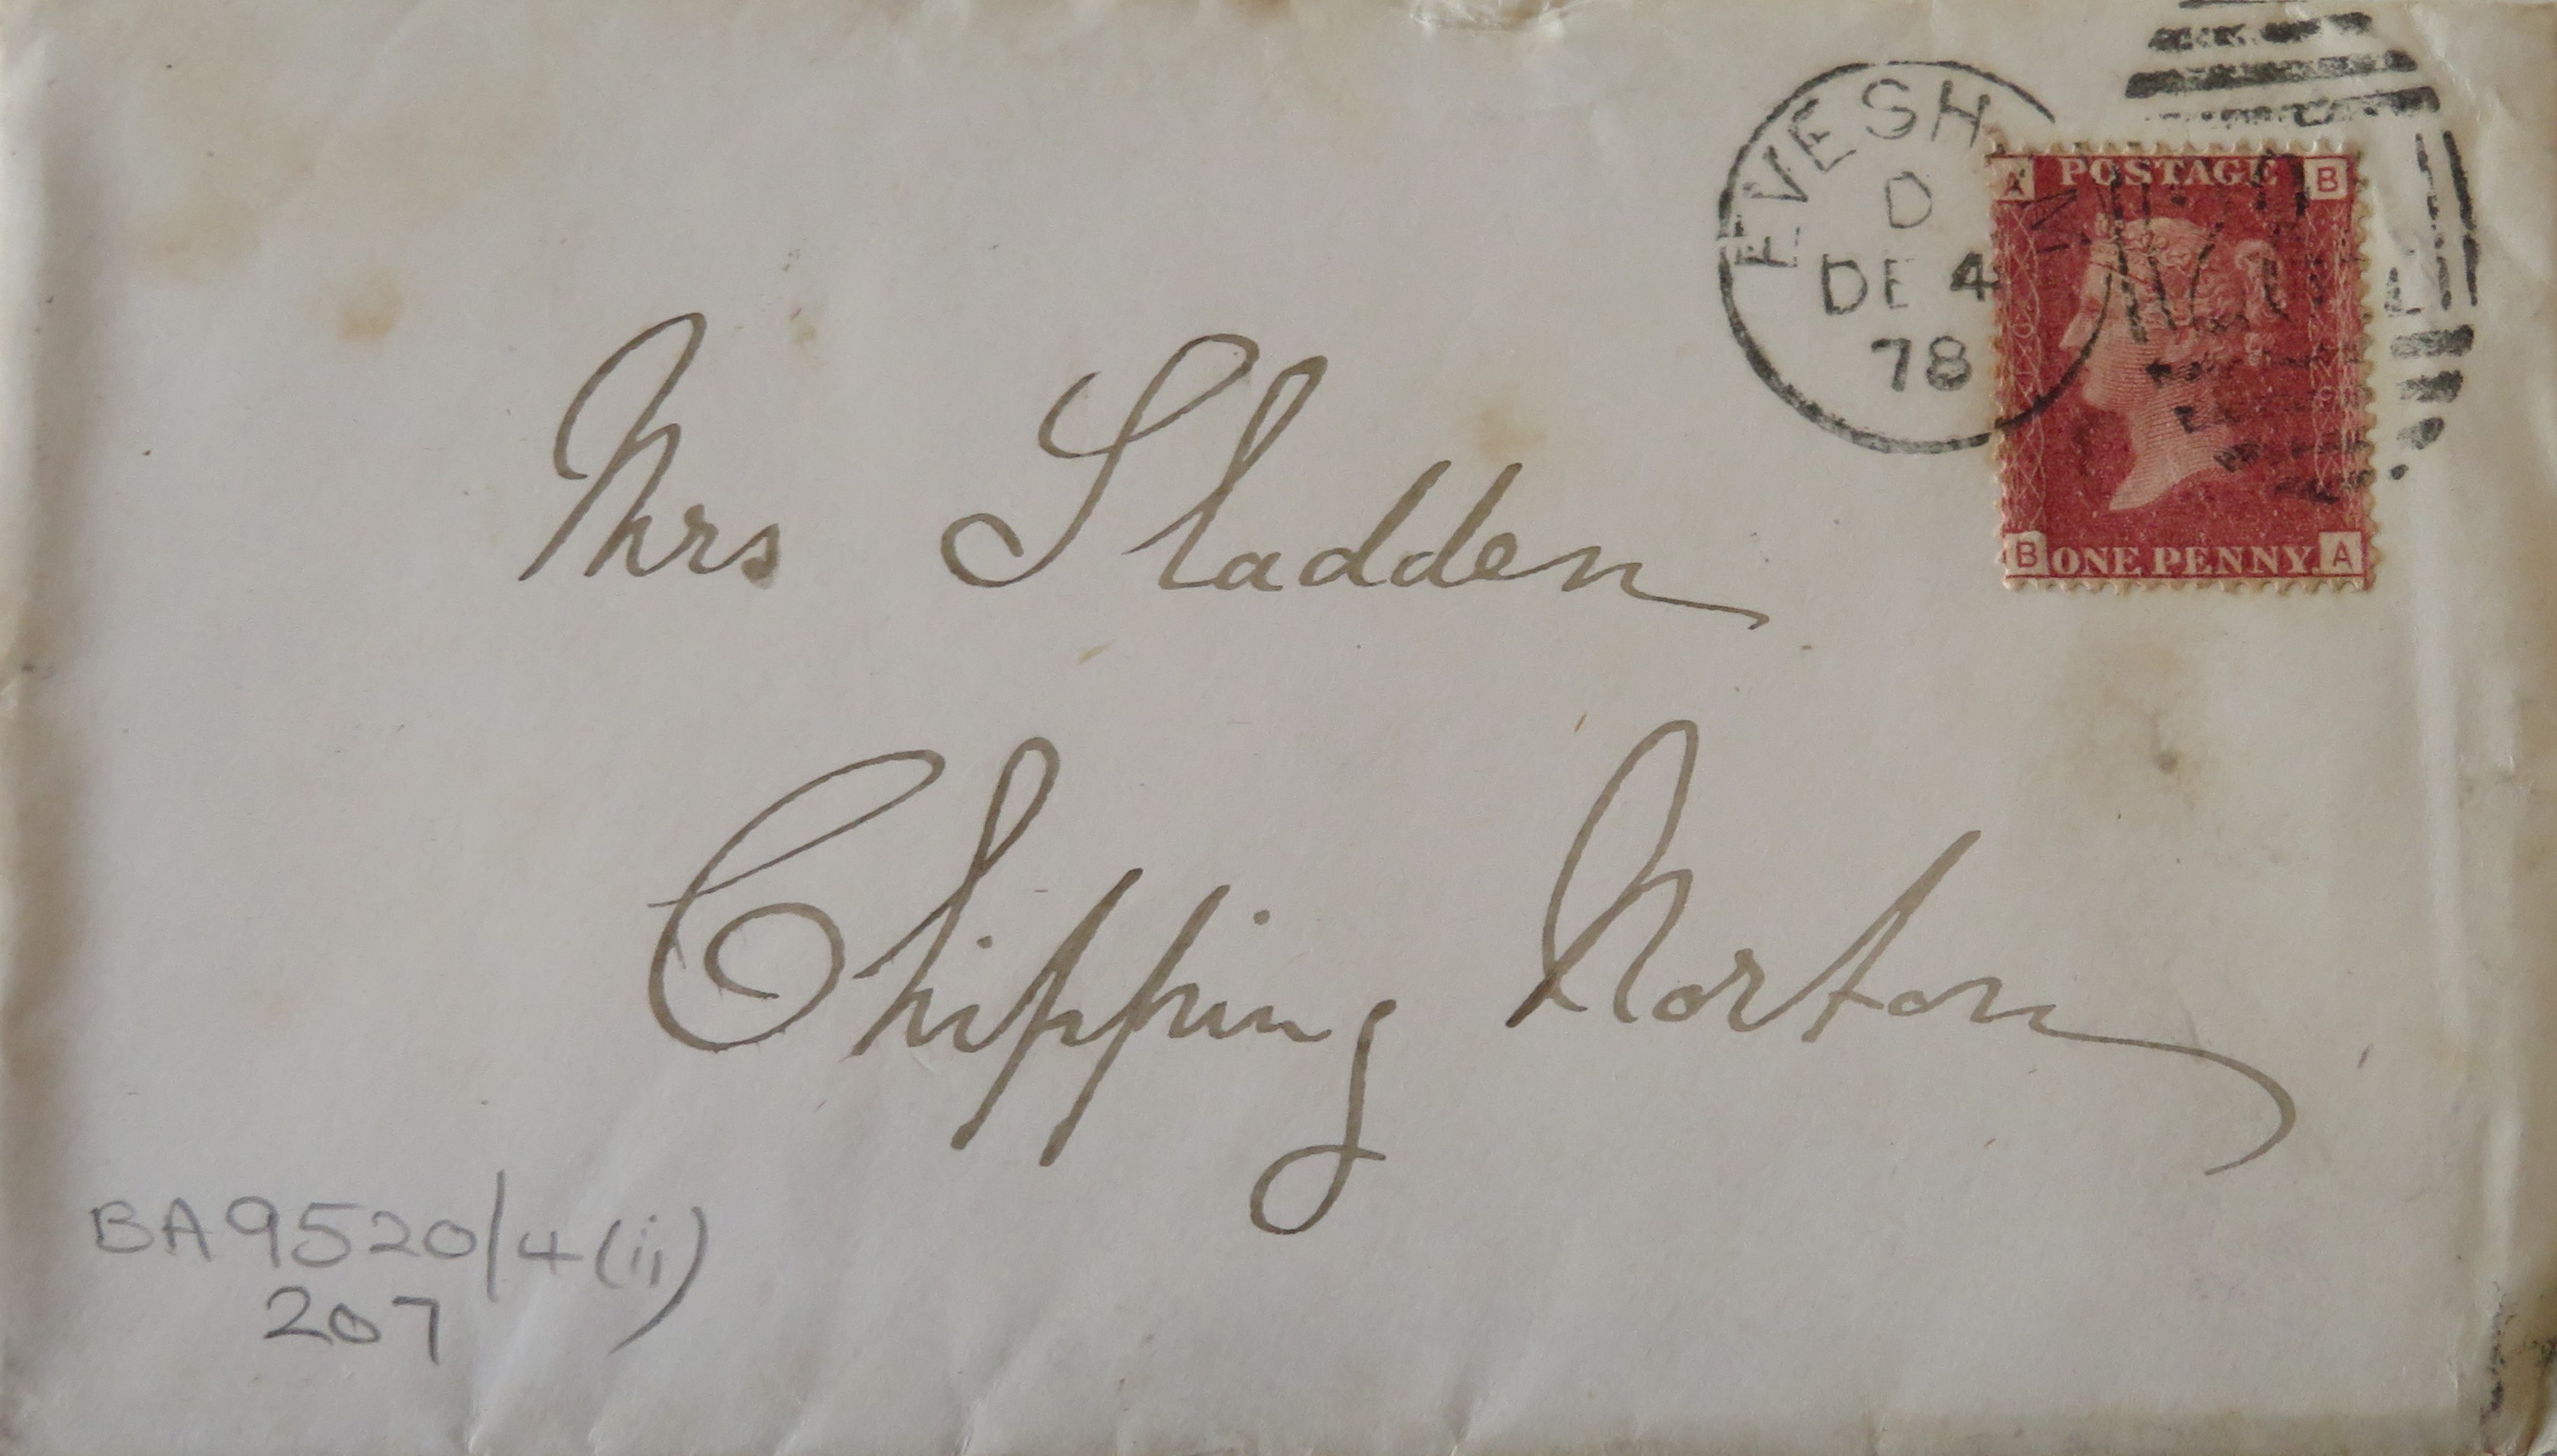 EVESH M
D
DE 4
78
A POSTAGE B
B ONE PENNY. A
Mrs Sladden
Chipping Norton
BA9520/4(ii)
207